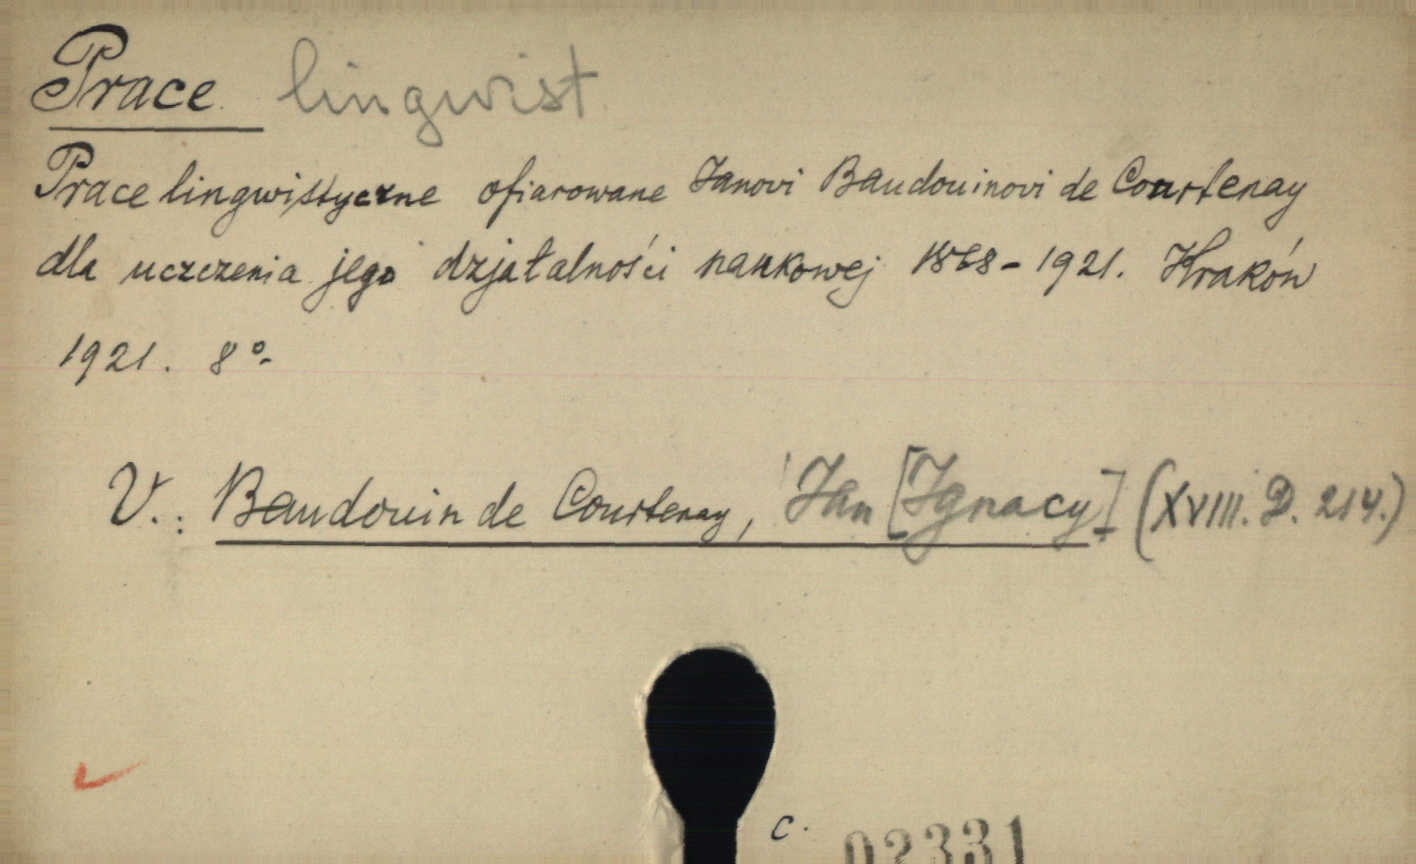 Prace lingwist
Prace lingwistyczne ofiarowane Janovi Baudouinovi de Courtenay
dla uczczenia jego dzjałalności naukowej 1868-1921. Kraków
1921. 8°.
V.: Baudouin de Courtenay, Jan [Ignacy] (XVIII. D. 214.)
c.
02331